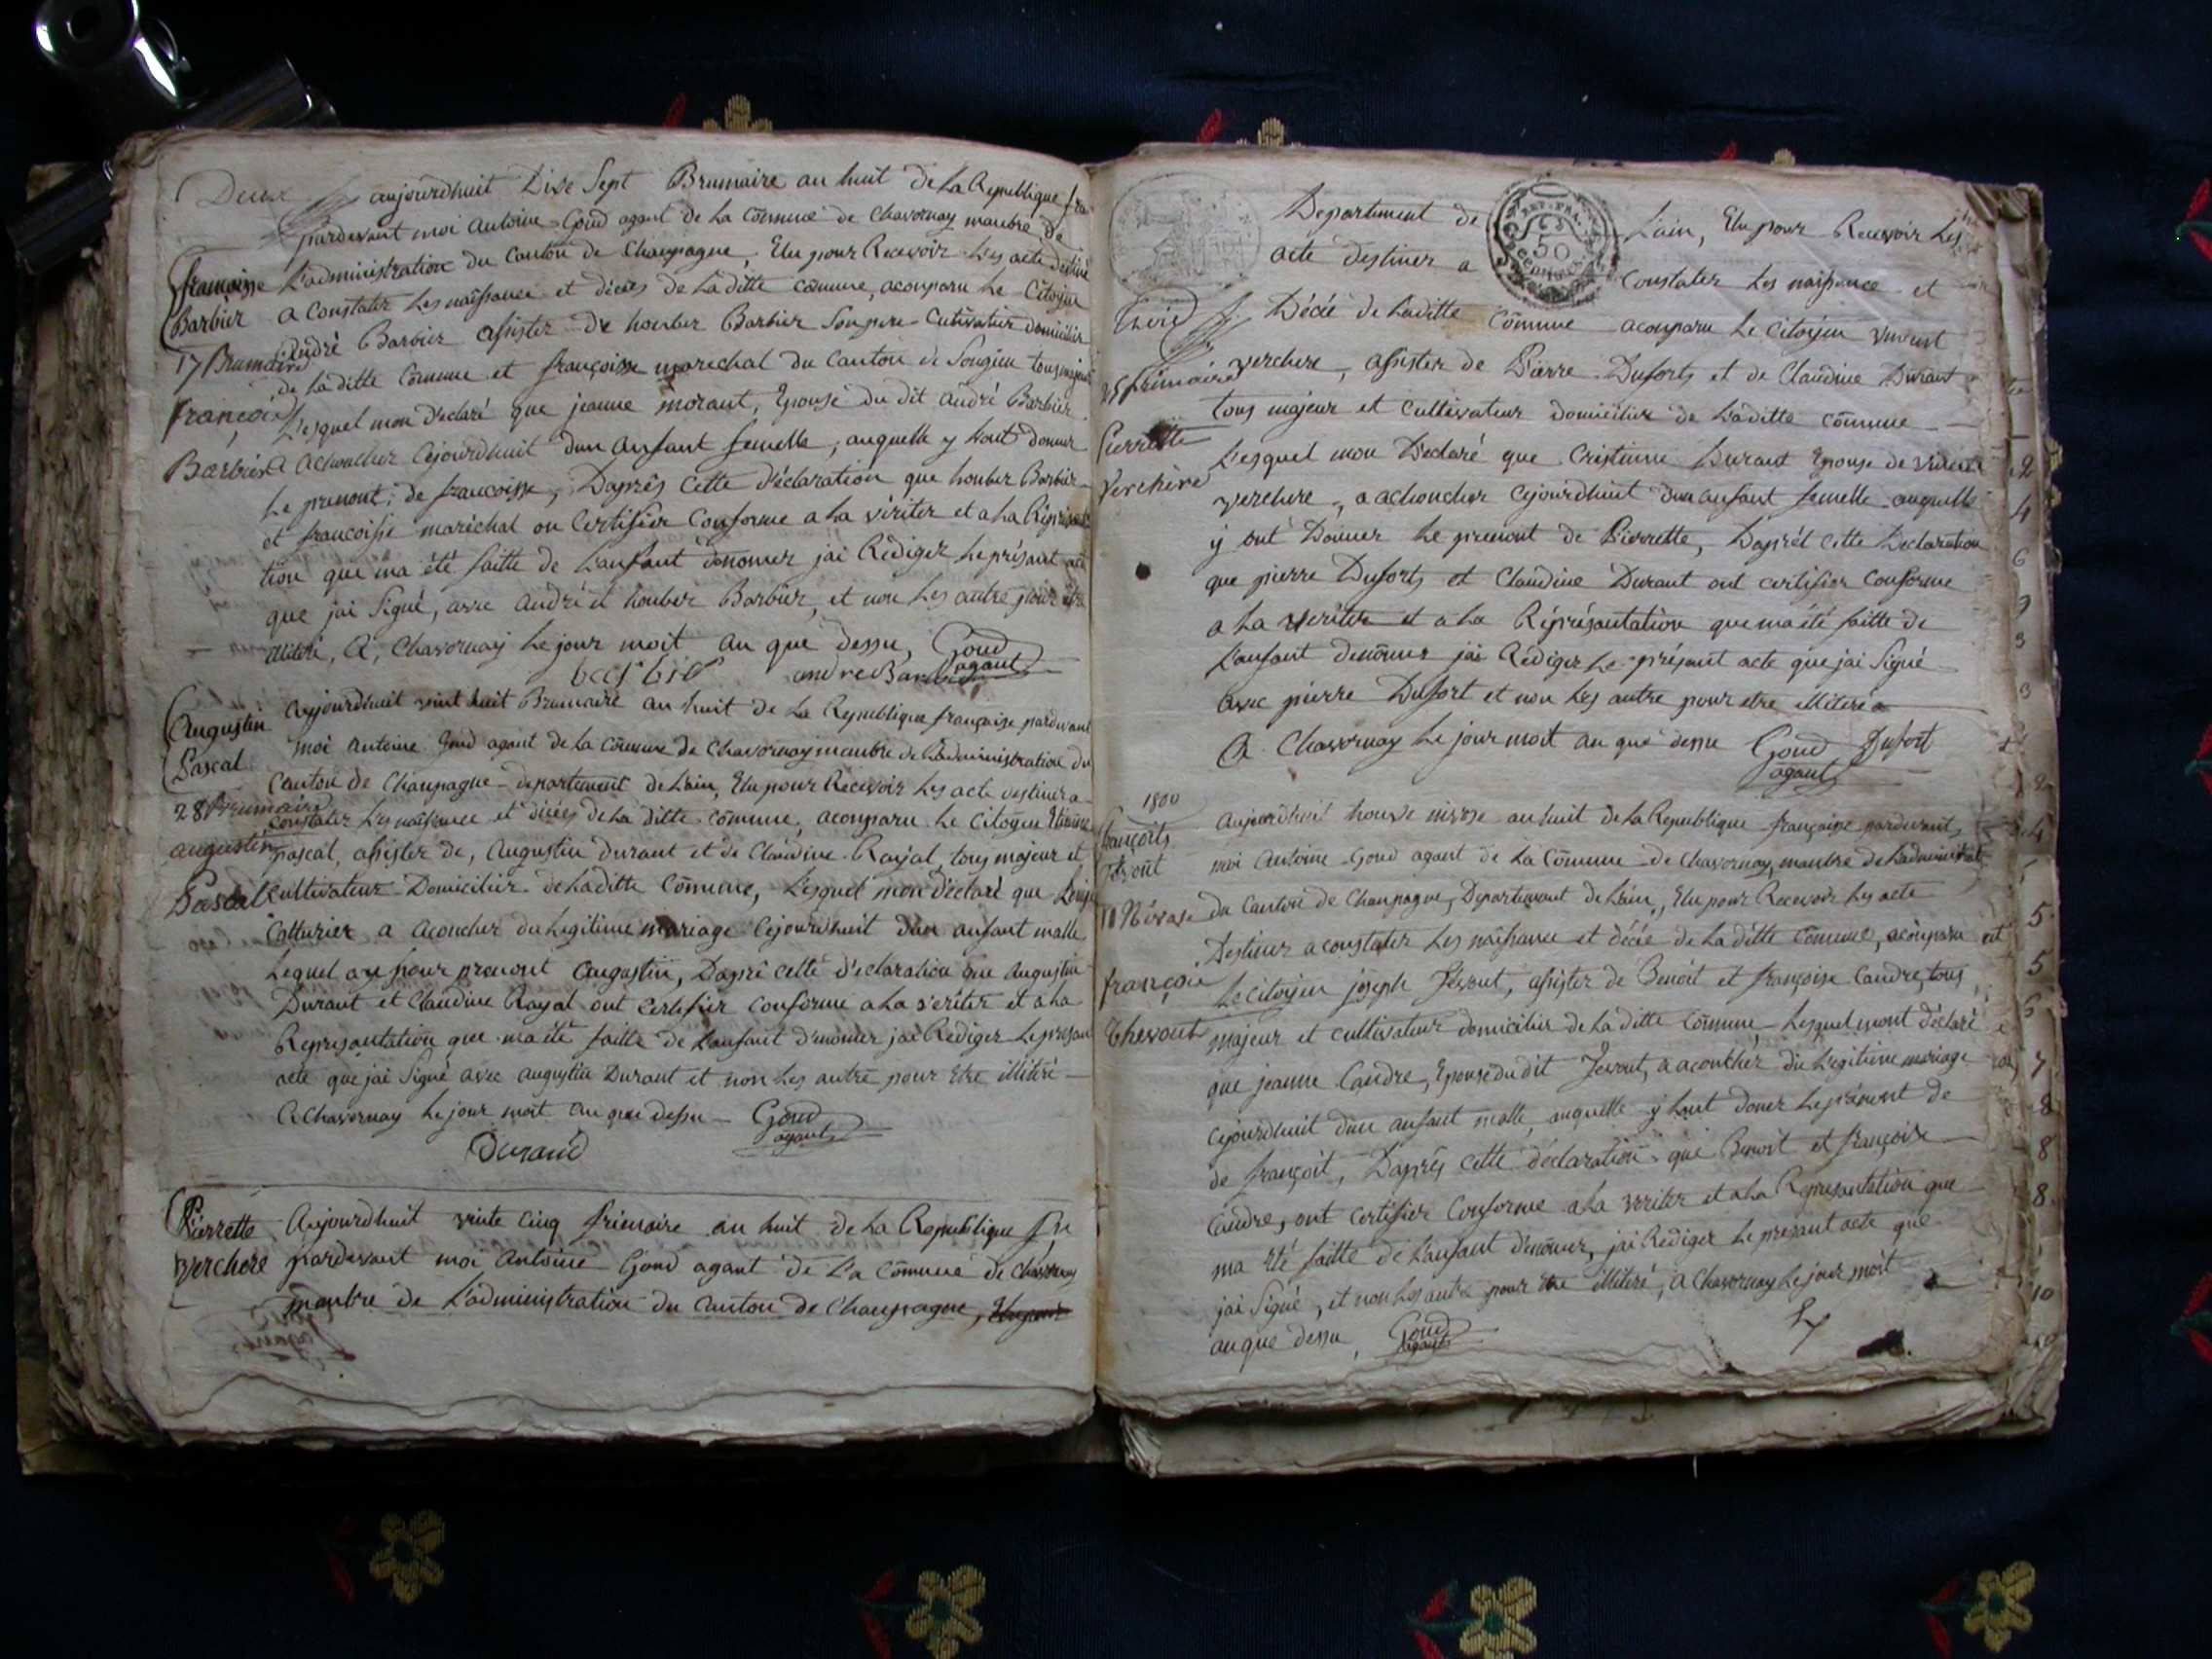 Deux aujourdhuit Dixe Sept Brumaire an huit de La Republique fra
pardevant moi antoine Goud agant de La Cõmune de Chavornay manbre de
françoisse L'administration du Canton de Champagne, Elu pour Recevoir Les acte destiné
Barbier a Constater Les naissance et décès de Laditte cõmune, aconparu Le Citoyen
17 Brumaire andré Barbier assister de houber Barbier Son pere Cutivatier domicilier
de Laditte Cõmune et françoisse marechal du Canton de Songieu tous majeur
françoise Lesquel mon Déclaré que jeanne morant, Epouse du dit andré Barbier
Barbier a achoucher Cejourdhuit dun anfant femelle, auquelle y hont donner
Le prenont, de francoisse, Daprês Cette Déclaration que houber Barbier
et francoisse maréchal on Certifier Conforme a La vériter et a La Réprésanta
tion que ma été faitte de L'anfant dénomer jai Rédiger Le présant acte
que jai Signé, avec andré et houber Barbier, et non Les autre pour être
illiteré, A, Chavornay Le jour moit an que dessu, Goud
agant
barbié andre Barbié
Augustin aujourdhuit vint huit Brumaire an huit de La Republique françaisse pardevant
Pascal moi antoine Goud agant de La Cõmune de Chavornay manbre de L'administration du
Canton de Champagne departement de Lain, Elu pour Recevoir Les acte destiner a
28 Brumaire constater Les naissance et décées de La ditte cõmune, aconparu Le Citoyen Etienne
augustin pascal, assister de, augustin Durant et de Claudine Rayal, tous majeur et
Pascal Cultivateur Domicilier de Laditte Cõmune, Lesquel mon déclaré que
Cotturier a acoucher du Legitime mariage Cejourdhuit dun anfant malle
Lequel a eu pour prenont augustin, Daprê cette déclaration que augustin
Durant et Claudine Rayal ont Certifier Conforme a La vériter et a La
Représantation que ma été faitte de Lanfant dénomer jai Rédiger Le présan
acte que jai Signé avec augustin Durant et non Les autre pour Etre illitéré
A Chavornay Le jour moit an que dessu Goud
agant
Durand
Pierrette Aujourdhuit vinte Cinq frimaire an huit de La Republique
verchere pardevant moi antoine Goud agant de La Cõmune de Chavornay
manbre de L'administration du Canton de Champagne, Elu pour
agant
Departement de Lain, Elu pour Recevoir Les
REP. FRA.
50
acte destiner a Constater Les naissance et
Décée de Laditte Cõmune aconparu Le Citoyen vincent
25 frimaire verchere, assister de Pierre Duforts et de Claudine Durant
tous majeur et Cultivateur domicilier de Laditte cõmune
Pierrette Lesquel mon Déclaré que Cristinne Durant Epouse de vincent
Verchère verchere, a achoucher Cejourdhuit dun anfant femelle auquelle
y ont Donner Le prenont de Pierrette, Daprêt cette Déclaration
que pierre Duforts et Claudine Durant ont certifier Conforme
a La vériter et a La Réprésantation que ma été faitte de
L'anfant denõmer jai Rédiger Le présant acte que jai Signé
avec pierre Dufort et non Les autre pour etre illiteré
A Chavornay Le jour moit an que dessu Goud Dufort
agant
1800
françoits Aujourdhuit honze nivose an huit de La Republique françaisse pardevant
moi antoine Goud agant de La Cõmune de Chavornay, manbre de Ladministrat
11 Nivose du Canton de Champagne, Departement de Lain, Elu pour Recevoir Les acte
Destiner a constater Les naissance et décée de La ditte Cõmune, aconparu
françois Le Citoyen joseph Jévout, assister de Benoit et françoise Candre, tous
thevout majeur et cultivateur domicilier de La ditte Cõmune Lesquel mont déclaré
que jeanne Candre, Epouse du dit Jevout, a acouchér du Légitime mariage
cejourdhuit dun anfant malle, auquelle y hont doner Le prénont de
de françoit, Daprês cette déclaration que Benoit et françoise
Candre, ont certifier Conforme a La veriter et a La Représantation que
ma Eté faitte de L'anfant dénõmer, jai Rediger Le présant acte que
jai Signé, et non Les autre pour etre illiteré, a Chavornay Le jour moit
an que dessu, Goud
agant